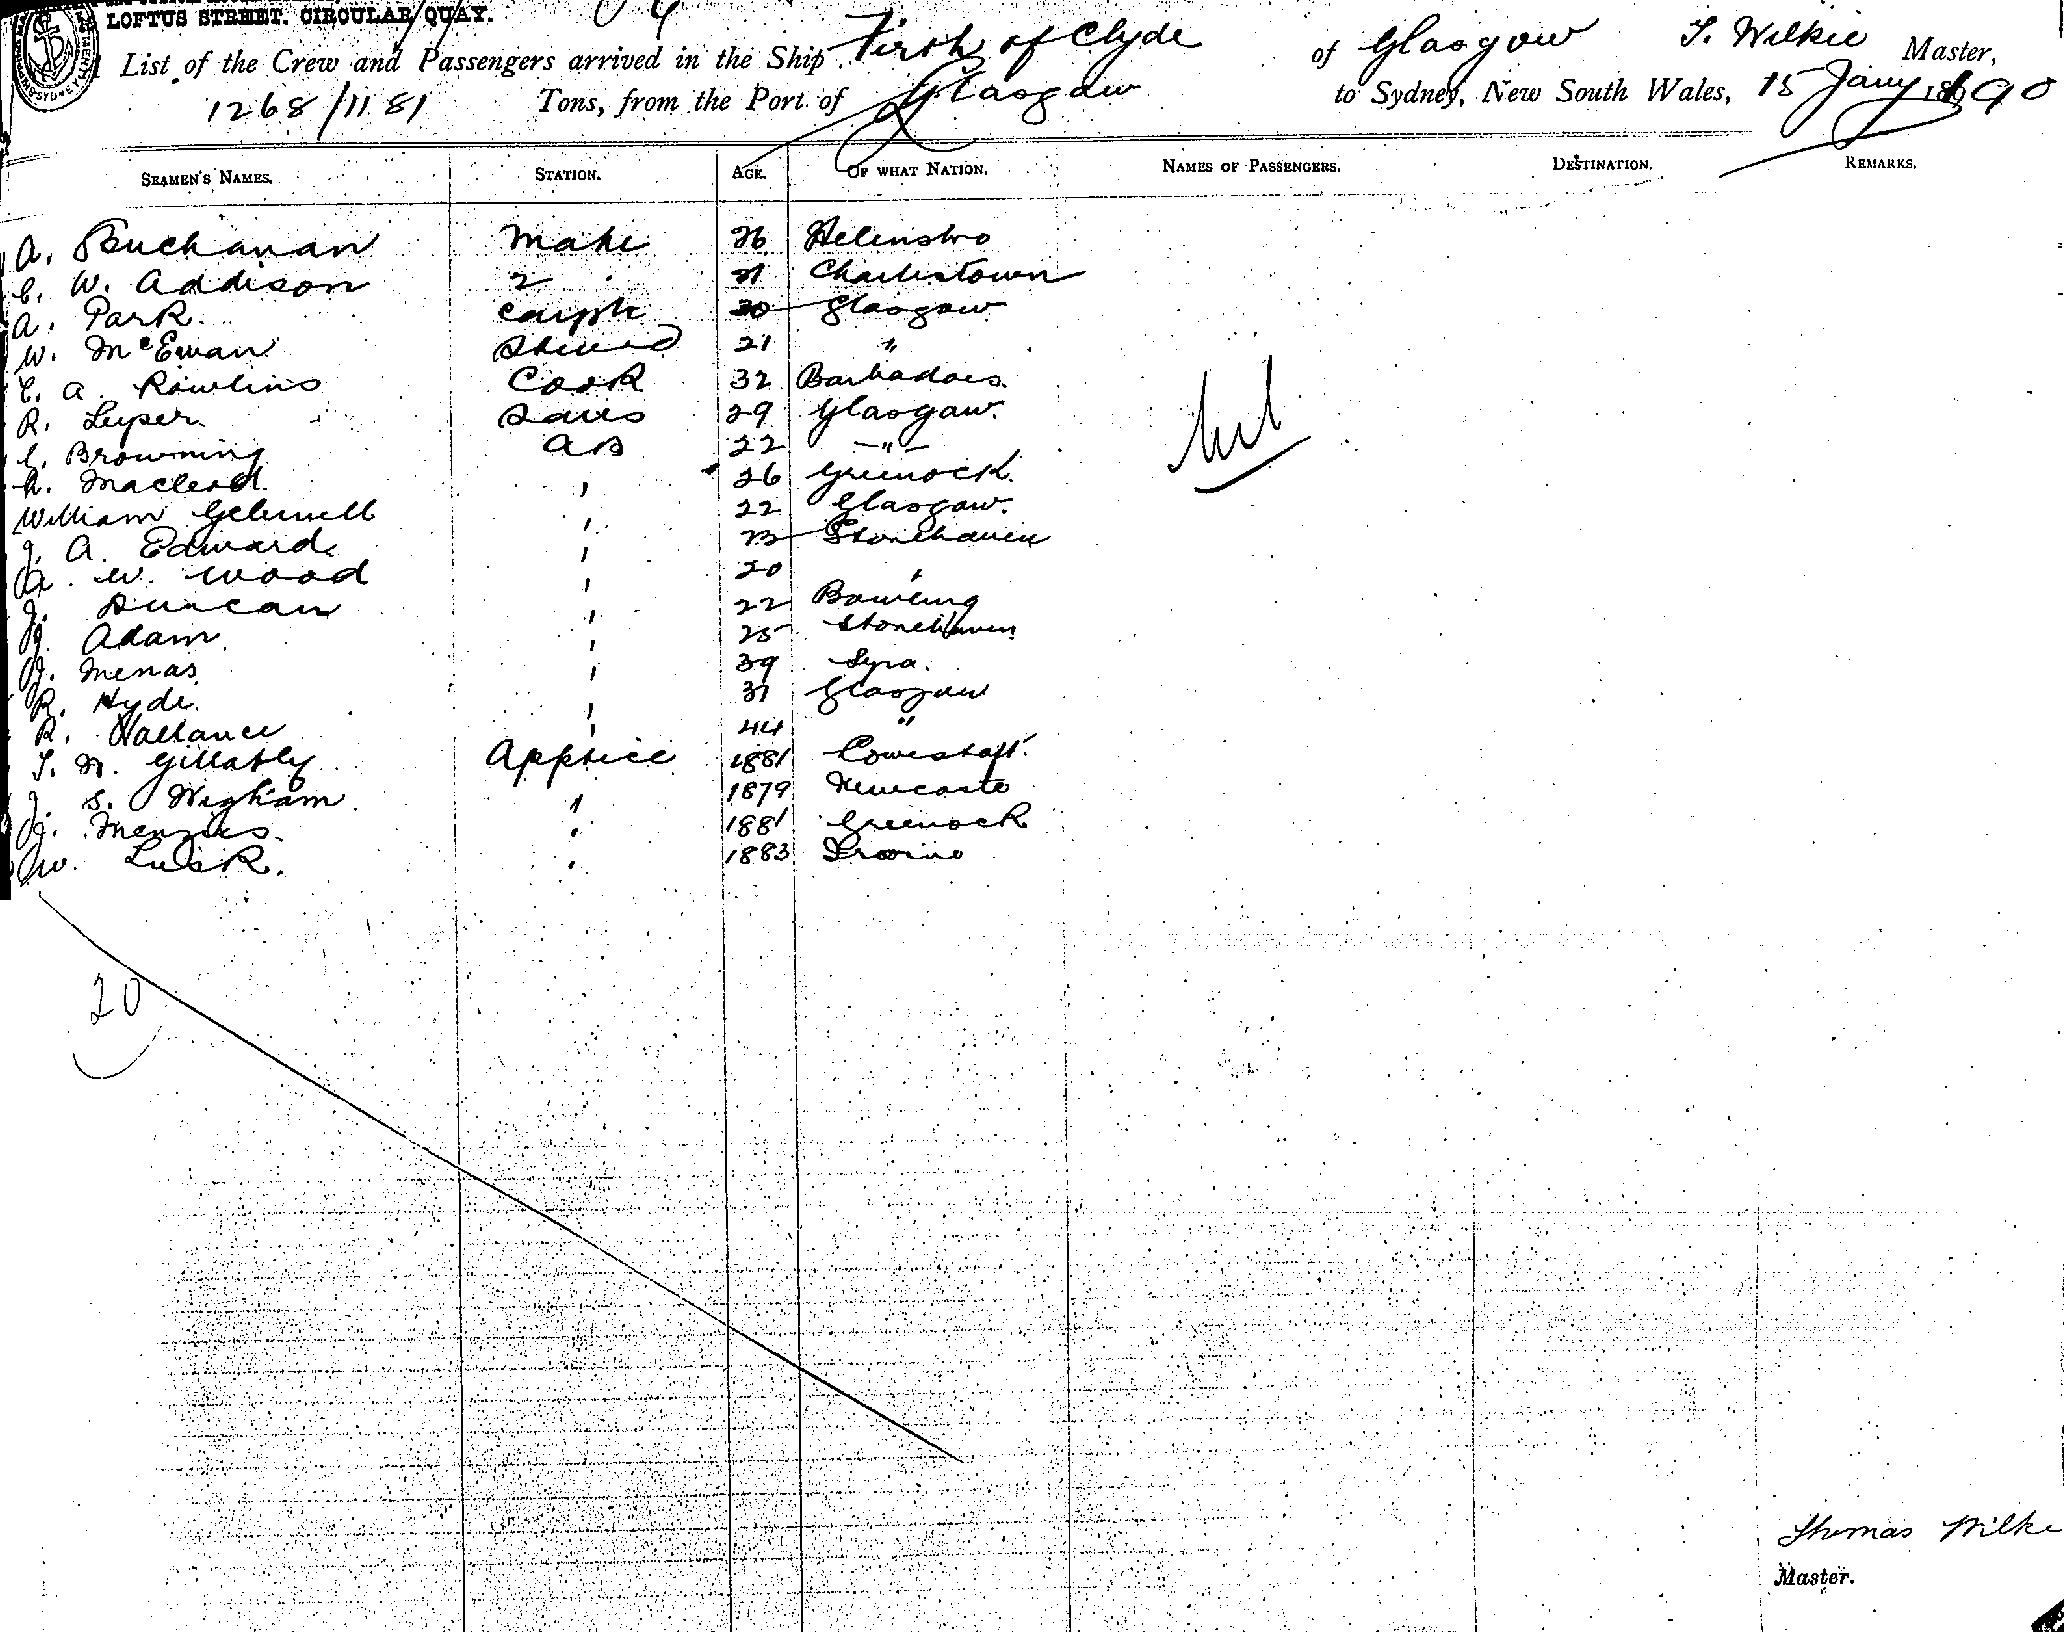 LOFTUS STREET. CIRCULAR QUAY.
List of the Crew and Passengers arrived in the Ship Firth of Clyde of Glasgow T. Wilkie Master,
1268/1181 Tons, from the Port of Glasgow to Sydney, New South Wales, 15 Jany 1890
SEAMEN'S NAMES. STATION. AGE. OF WHAT NATION. NAMES OF PASSENGERS. DESTINATION. REMARKS.
A. Buchanan Mate 26 Helensbro
C. W. Addison 2 21 Charlestown
A. Park Carptr 30 Glasgow
W. McEwan Steward 21 "
C. A. Rawlins Cook 32 Barbadoes
R. Leyper Sails 29 Glasgow
C. Browning AB 22 "
Macleod ' 26 Greenock
William Gemmell ' 22 Glasgow
J. A. Edward ' 23 Stonehaven
A. W. Wood ' 20 '
J. Duncan ' 22 Bowling
J. Adam ' 25 Stonehaven
J. Menas ' 39 Syra
R. Hyde ' 31 Glasgow
R. Vallance ' 44 "
T. N. Gillatly Apptice 1881 Lowestoft
J. S. Wigham ' 1879 Newcastle
J. Menzies ' 1881 Greenock
W. Lusk ' 1883 Irvine
Nil
20
Thomas Wilkie
Master.